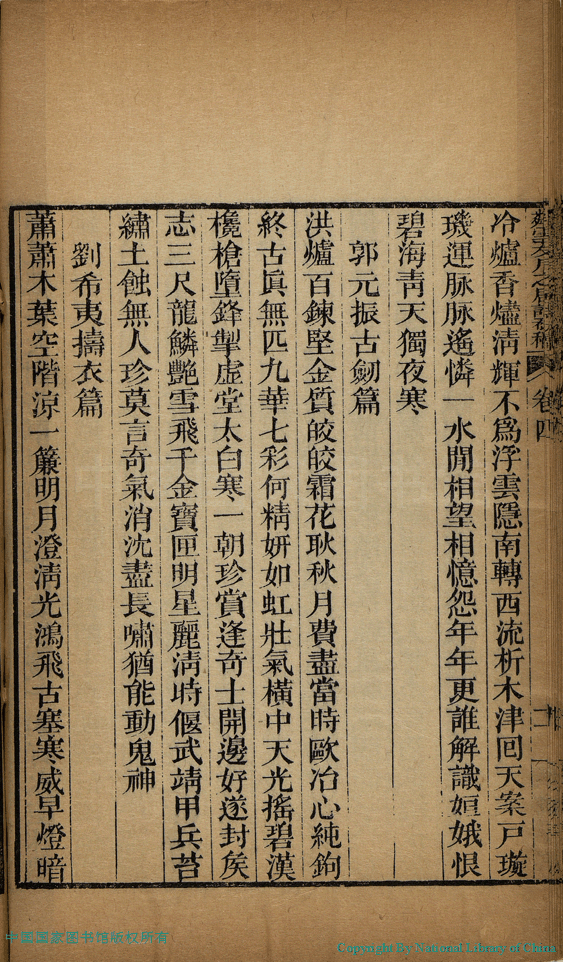 卷四
冷爐香燼清輝不爲浮雲隱南轉西流析木津回天案戸璇
璣運脉脉遙憐一水閒相望相憶怨年年更誰解識姮娥恨
碧海青天獨夜寒
郭元振古劒篇
洪爐百鍊堅金質皎皎霜花耿秋月費盡當時歐冶心純鉤
終古眞無匹九華七彩何精妍如虹壯氣橫中天光搖碧漢
欃槍墮鋒掣虛堂太白寒一朝珍賞逢奇士開邊好遂封矦
志三尺龍鱗艷雪飛千金寶匣明星麗淸時偃武靖甲兵苔
繡土蝕無人珍莫言奇氣消沈盡長嘯猶能動鬼神
劉希夷擣衣篇
蕭蕭木葉空階涼一簾明月澄淸光鴻飛古塞寒威早燈暗
中国国家图书馆版权所有
Copyright By National Library of China